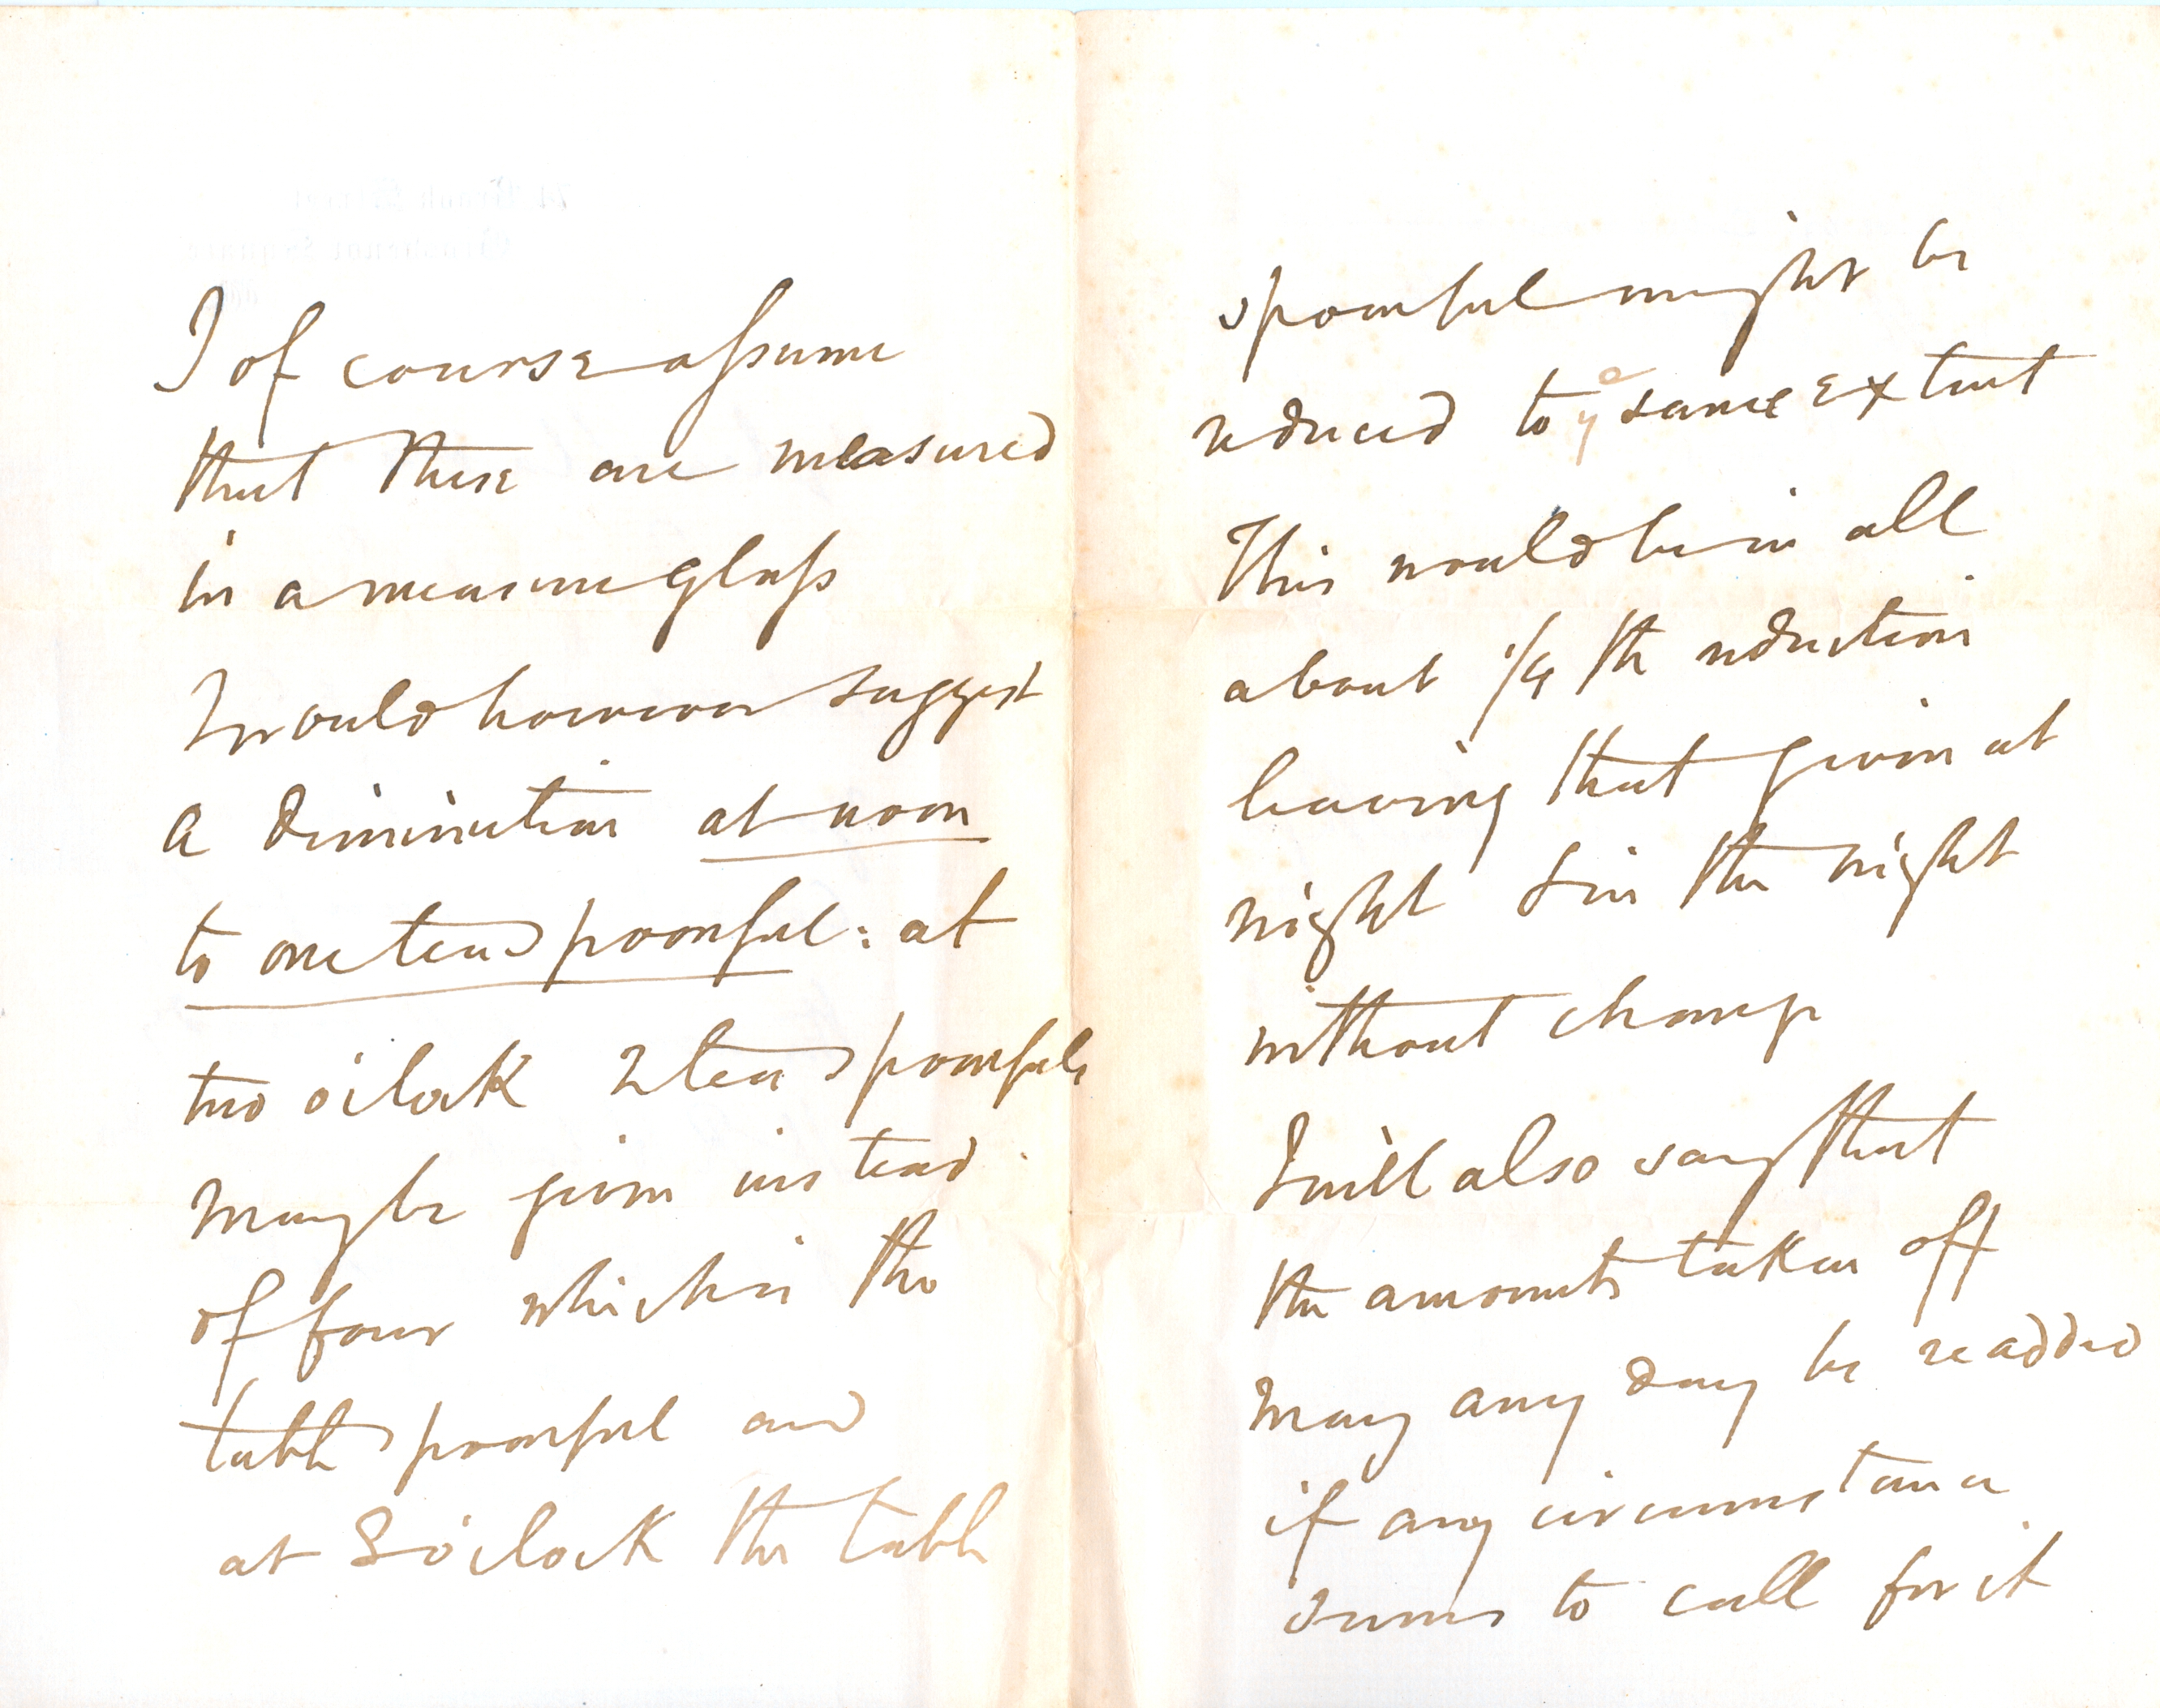 I of course assume
that these are measured
in a measure glass
I would however suggest
a diminution at noon
to one teaspoonful: at
two o'clock 2 teaspoonfuls
may be given instead
of four which is the
tablespoonful and
at 8 o'clock the table
spoonful might be
reduced to ye same extent
This would be in all
about 1/4 th reduction
leaving that given at
night & in the night
without change
I will also say that
the amounts taken off
may any day be readded
if any circumstance
seems to call for it